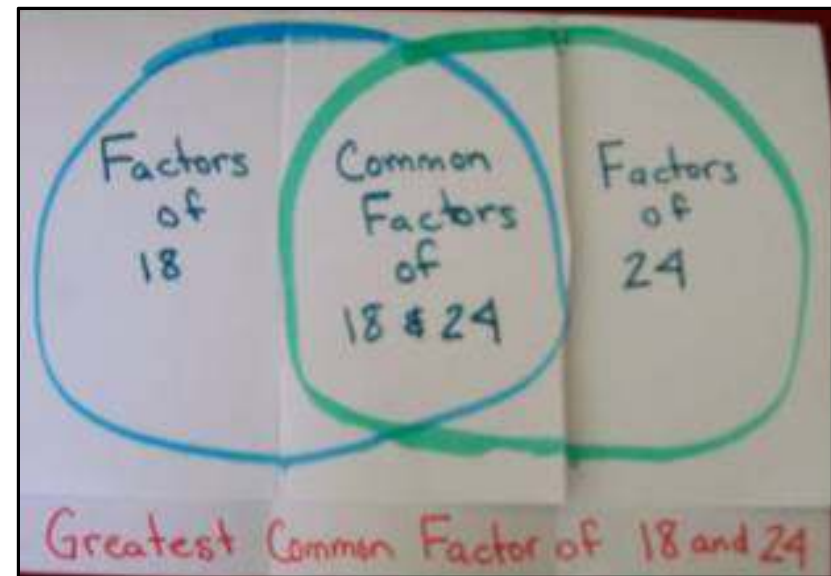 Factors
of
18
Common
Factors
of
18 & 24
Factors
of
24
Greatest Common Factor of 18 and 24